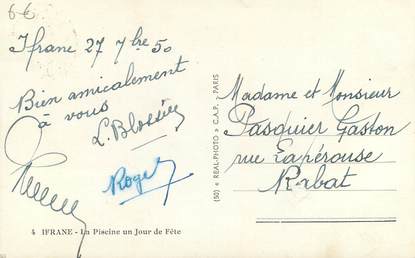 6€
Ifrane 27 7bre 50
Bien amicalement
à vous
L. Blossier
Roger
4 IFRANE - La Piscine un Jour de Fête
(50) « REAL-PHOTO » C.A.P. - PARIS
Madame et Monsieur
Pasquier Gaston
rue Lapérouse
Rabat